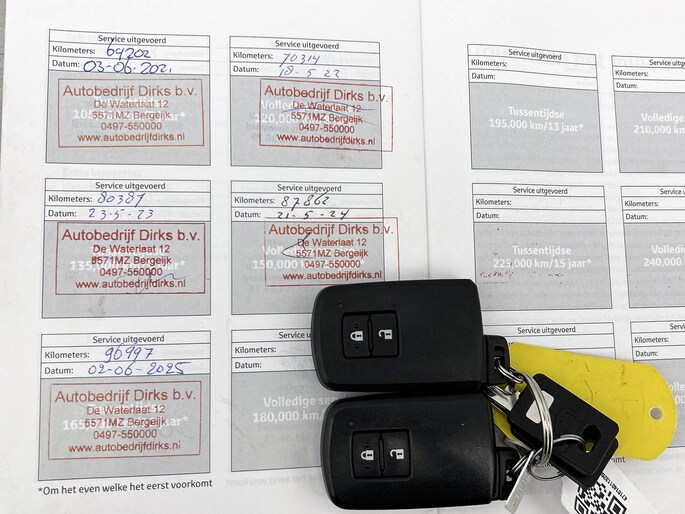 Service uitgevoerd
Kilometers: 64202
Datum: 03-06-202
Autobedrijf Dirks b.v.
De Waterlaat 12
5571MZ Bergeijk
0497-550000
www.autobedrijfdirks.nl
Service uitgevoerd
Kilometers: 70314
Datum: 18-5-22
Autobedrijf Dirks b.v.
De Waterlaat 12
5571MZ Bergeijk
0497-550000
www.autobedrijfdirks.nl
Service uitgevoerd
Kilometers: 80387
Datum: 23-5-23
Autobedrijf Dirks b.v.
De Waterlaat 12
5571MZ Bergeijk
0497-550000
www.autobedrijfdirks.nl
Service uitgevoerd
Kilometers: 87862
Datum: 21-5-24
Autobedrijf Dirks b.v.
De Waterlaat 12
5571MZ Bergeijk
0497-550000
www.autobedrijfdirks.nl
Service uitgevoerd
Kilometers: 96997
Datum: 02-06-2025
Autobedrijf Dirks b.v.
De Waterlaat 12
5571MZ Bergeijk
0497-550000
www.autobedrijfdirks.nl
*Om het even welke het eerst voorkomt
Service
Kilometers:
Datum:
Volledige
180,000 km/
Service uitgevoerd
Kilometers:
Datum:
Tussentijdse
195,000 km/13 jaar*
Service
Kilometers:
Datum:
Volledige
210,000
Service uitgevoerd
Kilometers:
Datum:
Tussentijdse
225,000 km/15 jaar*
Service
Kilometers:
Datum:
Volledige
240,000
Service uitgevoerd